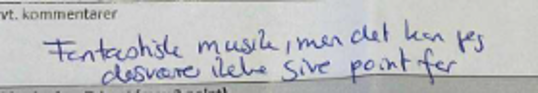 vt. kommentarer
Fantastisk musik, men det kan jeg
desværre ikke give point for